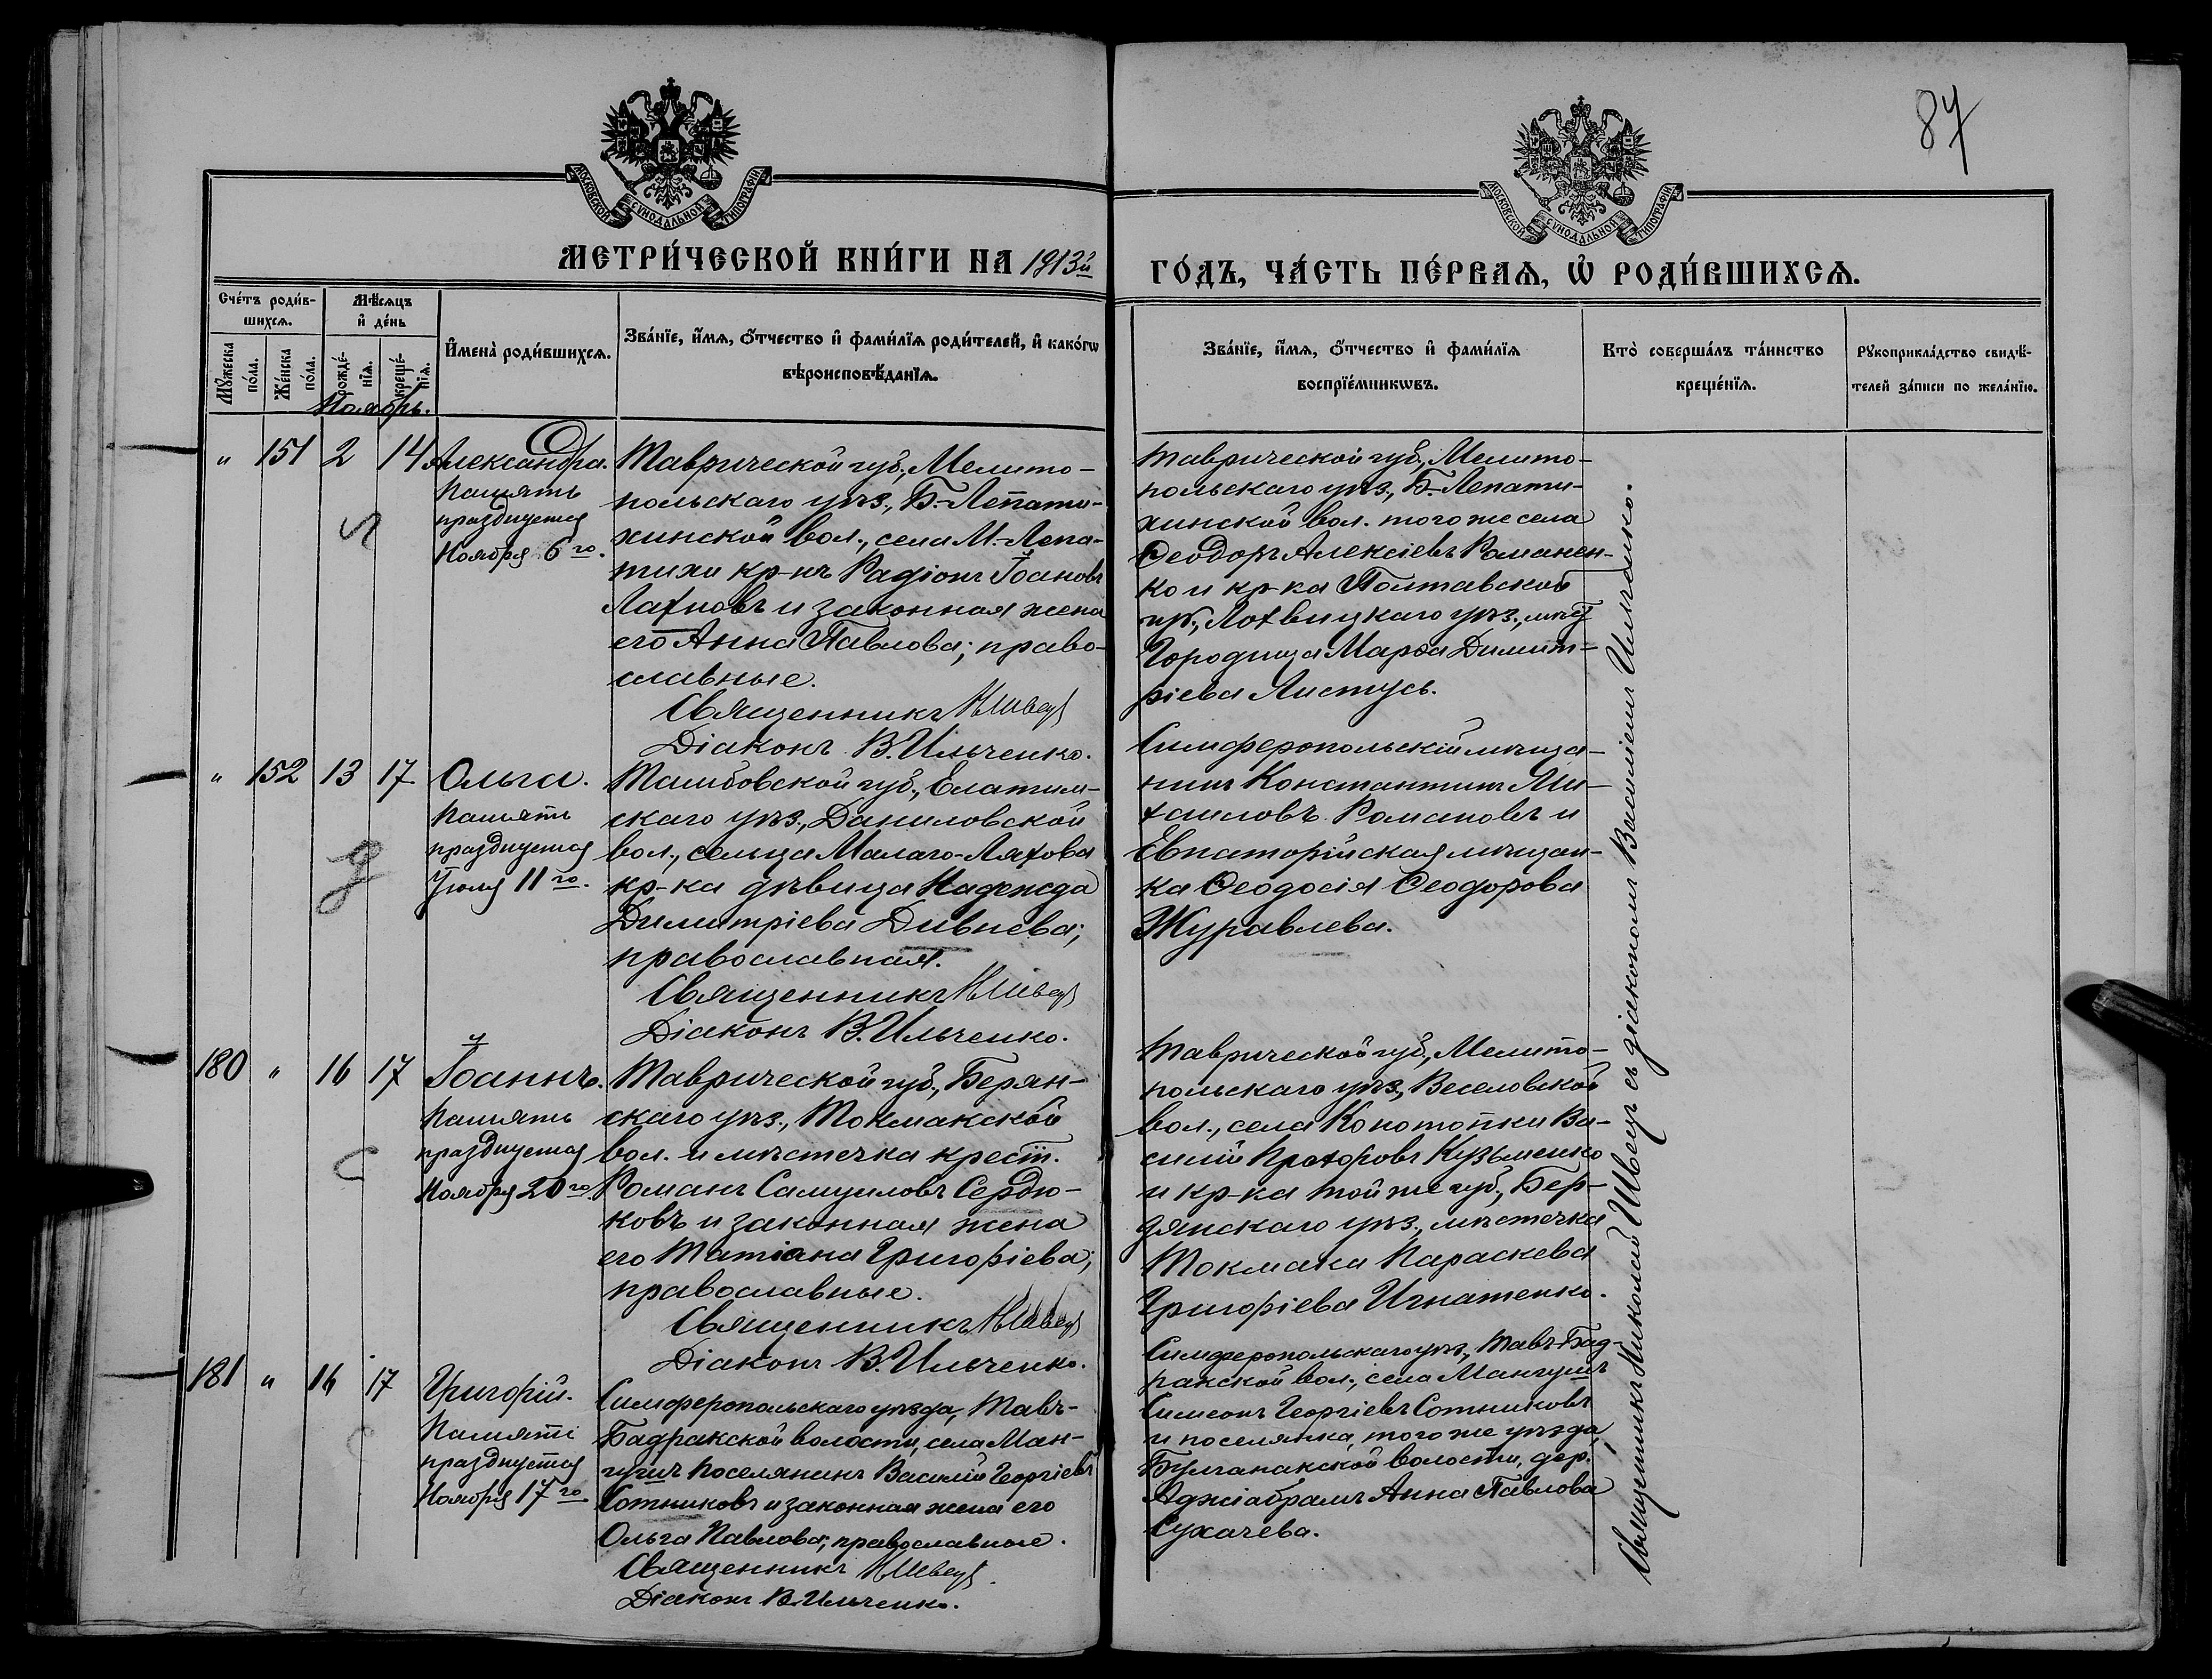 87
МОСКОВСКОЙ СѴНОДАЛЬНОЙ ТИПОГРАФІИ
МОСКОВСКОЙ СѴНОДАЛЬНОЙ ТИПОГРАФІИ
МЕТРИ́ЧЕСКОЙ КНИ́ГИ НА 1913й
ГО́ДЪ, ЧА́СТЬ ПЕ́РВАѦ, Ѡ҆ РОДИ́ВШИХСѦ.
Сче́тъ роди́в-
шихсѧ.
Мѣ́сѧцъ
и҆ де́нь
Мꙋ́жеска
по́ла.
Же́нска
по́ла.
рожде́-
нїѧ.
креще́-
нїѧ.
И҆мена̀ роди́вшихсѧ.
Зва́нїе, и҆́мѧ, ѻ҆́тчество и҆ фами́лїѧ роди́телей, и҆ како́гѡ
вѣроисповѣ́данїѧ.
Зва́нїе, и҆́мѧ, ѻ҆́тчество и҆ фами́лїѧ
воспрїе́мникѡвъ.
Кто̀ соверша́лъ та́инство
креще́нїѧ.
Рꙋкоприкла́дство свидѣ́-
телей за́писи по жела́нїю.
Ноябрь.
" 151 2 14 Александра.
Память
празднуется
Ноября 6го.
Таврической губ., Мелито-
польскаго уѣз., Б.-Лепати-
хинской вол., села М.-Лепа-
тихи кр-нъ Радіонъ Іоановъ
Лахновъ и законная жена
его Анна Павлова; право-
славные.
Священникъ Н Швец
Діаконъ В. Ильченко.
Таврической губ., Мелито-
польскаго уѣз., Б.-Лепати-
хинской вол. того же села
Ѳеодоръ Алексіевъ Романен-
ко и кр-ка Полтавской
губ., Лохвицкаго уѣз.,
Городища Марѳа Димит-
ріева Листусь.
" 152 13 17 Ольга.
Память
празднуется
Іюля 11го.
Тамбовской губ., Елатим-
скаго уѣз., Даниловской
вол., сельца Малаго-Ляхова
кр-ка дѣвица Надежда
Димитріева Дивнева;
православная.
Священникъ Н Швец
Діаконъ В. Ильченко.
Симферопольскій мѣща-
нинъ Константинъ Ми-
хаиловъ Романовъ и
Евпаторійская мѣщан-
ка Ѳеодосія Ѳеодорова
Журавлева.
180 " 16 17 Іоаннъ.
Память
празднуется
Ноября 20го
Таврической губ., Берян-
скаго уѣз., Токмакской
вол. и мѣстечка крест.
Романъ Самуиловъ Сердю-
ковъ и законная жена
его Татіана Григоріева;
православные.
Священникъ Н Швец
Діаконъ В. Ильченко.
Таврической губ., Мелито-
польскаго уѣз., Веселовской
вол., села Конотопки Ва-
силій Прохоровъ Кузьменко
и кр-ка той же губ., Бер-
дянскаго уѣз., мѣстечка
Токмака Параскева
Григоріева Игнатенко.
181 " 16 17 Григорій.
Память
празднуется
Ноября 17го
Симферопольскаго уѣзда, Тавъ-
Бадракской волости, села Ман-
гушъ поселянинъ Василій Георгіевъ
Сотниковъ и законная жена его
Ольга Павлова; православные.
Священникъ Н Швец.
Діаконъ В. Ильченко.
Симферопольскаго уѣз., Тавъ-Бад-
ракской вол., села Мангушъ
Симеонъ Георгіевъ Сотниковъ
и поселянка, того же уѣзда,
Булганакской волости, дер.
Аджіабрамъ Анна Павлова
Сухачева.
Священникъ Николай Швецъ съ діакономъ Василіемъ Ильченко.